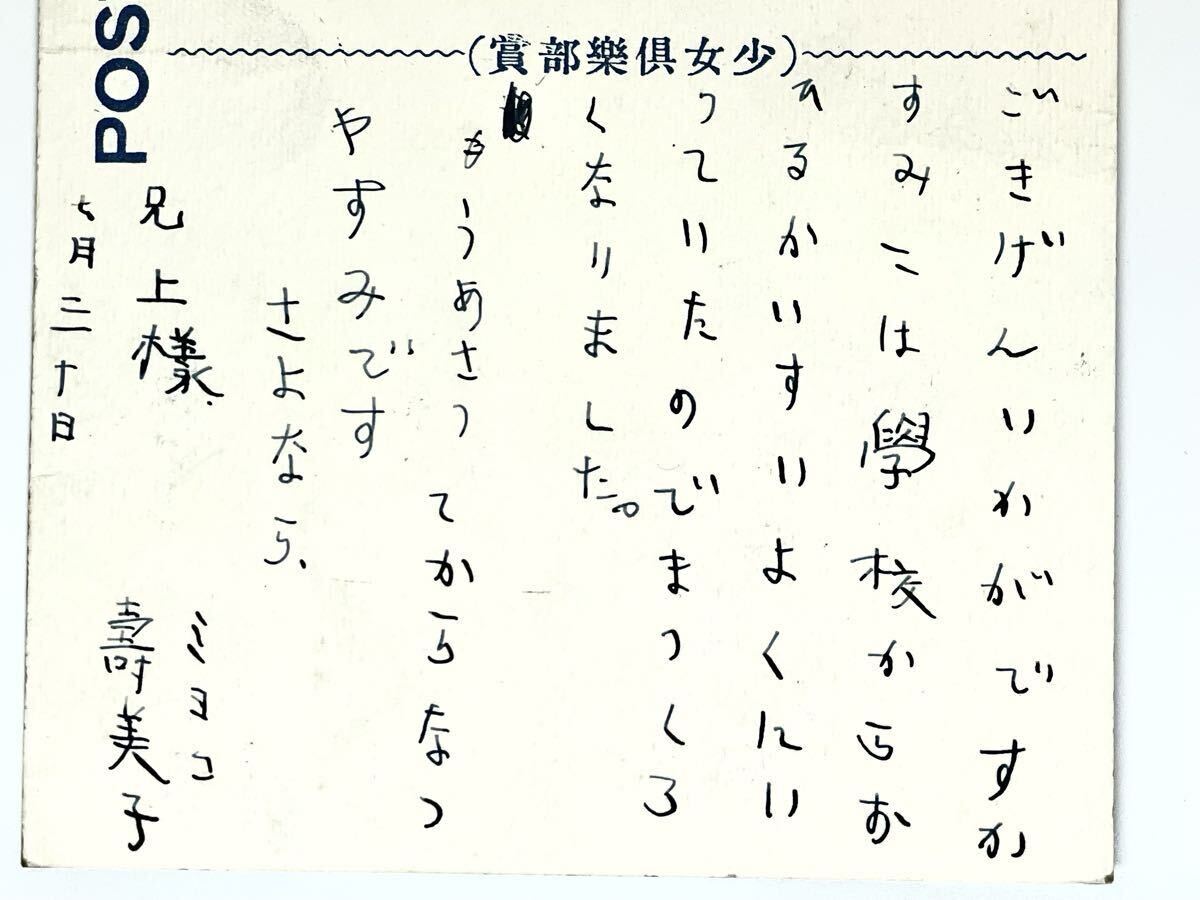 POS
(少女倶樂部賞)
ごきげんいかがですか
すみこは學校からお
ひるかいすいよくにい
っていたのでまつくろ
くなりました。
もうあさつてからなつ
やすみです
さよなら、
ミヨコ
壽美子
兄上様
七月二十日